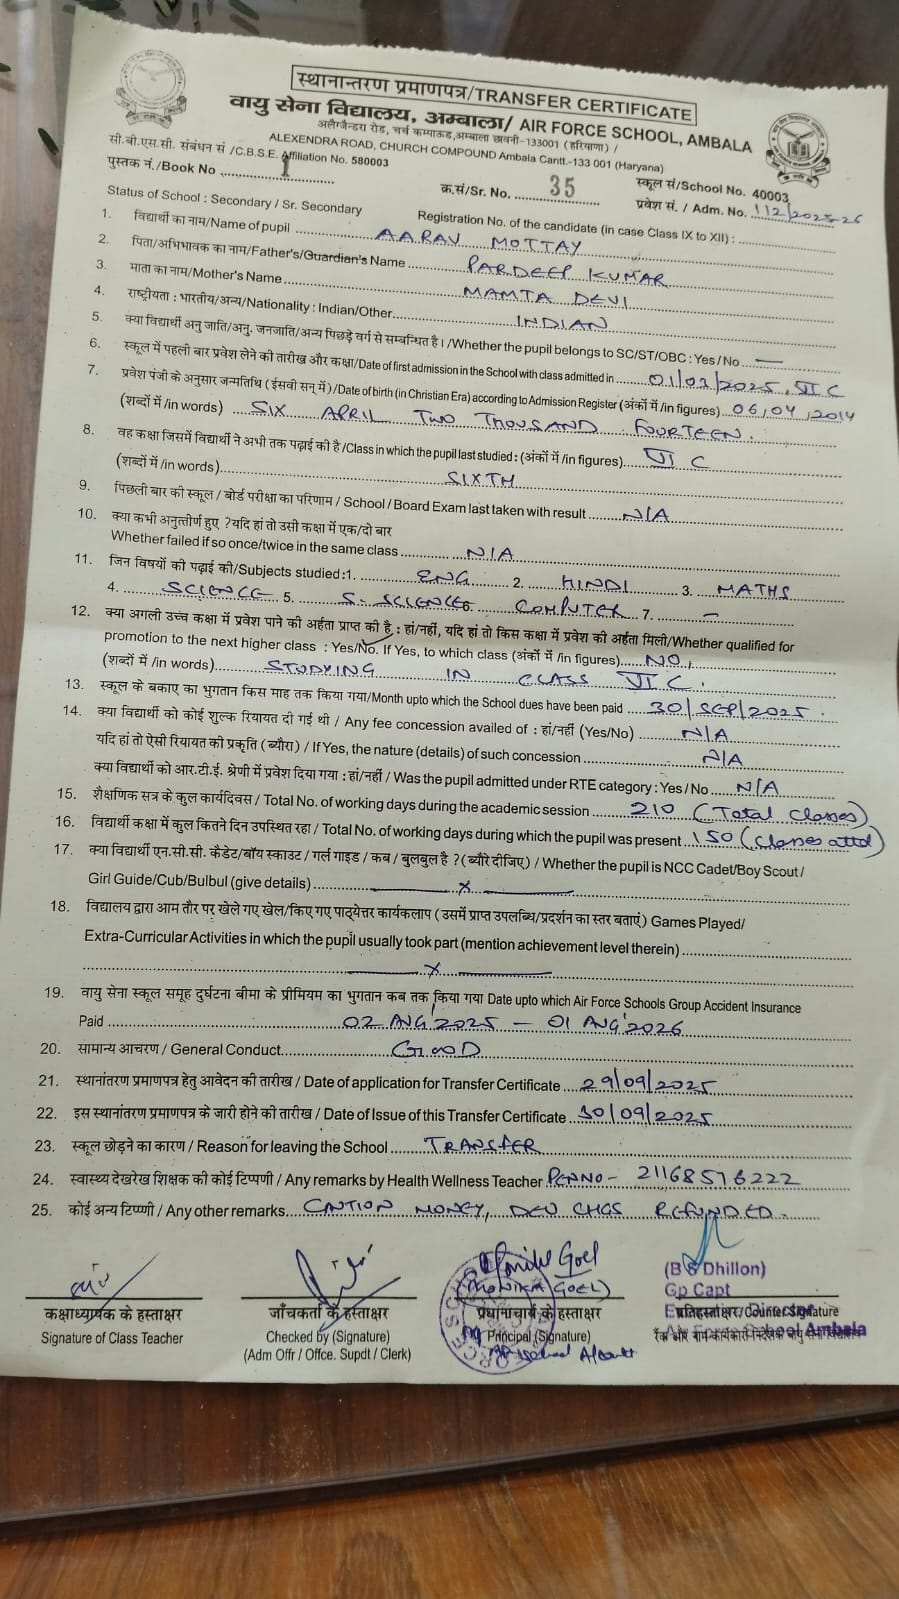 स्थानान्तरण प्रमाणपत्र/TRANSFER CERTIFICATE
वायु सेना विद्यालय, अम्बाला/ AIR FORCE SCHOOL, AMBALA
अलैग्जैन्डरा रोड, चर्च कम्पाऊड,अम्बाला छावनी-133001 (हरियाणा) /
ALEXENDRA ROAD, CHURCH COMPOUND Ambala Cantt.-133 001 (Haryana)
सी.बी.एस.सी. संबंधन सं /C.B.S.E. Affiliation No. 580003
स्कूल सं/School No. 40003
पुस्तक नं./Book No 1 क्र.सं/Sr. No. 35 प्रवेश सं. / Adm. No. 112/2025-26
Status of School : Secondary / Sr. Secondary Registration No. of the candidate (in case Class IX to XII) :
1. विद्यार्थी का नाम/Name of pupil AARAV MOTTAY
2. पिता/अभिभावक का नाम/Father's/Guardian's Name PARDEEP KUMAR
3. माता का नाम/Mother's Name MAMTA DEVI
4. राष्ट्रीयता : भारतीय/अन्य/Nationality : Indian/Other INDIAN
5. क्या विद्यार्थी अनु जाति/अनु. जनजाति/अन्य पिछड़े वर्ग से सम्बन्धित है। /Whether the pupil belongs to SC/ST/OBC : Yes / No —
6. स्कूल में पहली बार प्रवेश लेने की तारीख और कक्षा/Date of first admission in the School with class admitted in 01/03/2025, VI C
7. प्रवेश पंजी के अनुसार जन्मतिथि (ईसवी सन् में) /Date of birth (in Christian Era) according to Admission Register (अंकों में /in figures) 06/04/2014
(शब्दों में /in words) SIX APRIL TWO THOUSAND FOURTEEN.
8. वह कक्षा जिसमें विद्यार्थी ने अभी तक पढ़ाई की है /Class in which the pupil last studied : (अंकों में /in figures) VI C
(शब्दों में /in words) SIXTH
9. पिछली बार की स्कूल / बोर्ड परीक्षा का परिणाम / School / Board Exam last taken with result N/A
10. क्या कभी अनुत्तीर्ण हुए ? यदि हां तो उसी कक्षा में एक/दो बार
Whether failed if so once/twice in the same class N/A
11. जिन विषयों की पढ़ाई की/Subjects studied :1. ENG 2. HINDI 3. MATHS
4. SCIENCE 5. S. SCIENCE 6. COMPUTER 7. —
12. क्या अगली उच्च कक्षा में प्रवेश पाने की अर्हता प्राप्त की है : हां/नहीं, यदि हां तो किस कक्षा में प्रवेश की अर्हता मिली/Whether qualified for
promotion to the next higher class : Yes/No. If Yes, to which class (अंकों में /in figures) NO,
(शब्दों में /in words) STUDYING IN CLASS VI C.
13. स्कूल के बकाए का भुगतान किस माह तक किया गया/Month upto which the School dues have been paid 30/SEP/2025.
14. क्या विद्यार्थी को कोई शुल्क रियायत दी गई थी / Any fee concession availed of : हां/नहीं (Yes/No) N/A
यदि हां तो ऐसी रियायत की प्रकृति (ब्यौरा) / If Yes, the nature (details) of such concession N/A
क्या विद्यार्थी को आर.टी.ई. श्रेणी में प्रवेश दिया गया : हां/नहीं / Was the pupil admitted under RTE category : Yes / No N/A
15. शैक्षणिक सत्र के कुल कार्यदिवस / Total No. of working days during the academic session 210 (Total classes)
16. विद्यार्थी कक्षा में कुल कितने दिन उपस्थित रहा / Total No. of working days during which the pupil was present 150 (classes attd)
17. क्या विद्यार्थी एन.सी.सी. कैडेट/बॉय स्काउट / गर्ल गाइड / कब / बुलबुल है ? (ब्यौरे दीजिए) / Whether the pupil is NCC Cadet/Boy Scout/
Girl Guide/Cub/Bulbul (give details) —x—
18. विद्यालय द्वारा आम तौर पर खेले गए खेल/किए गए पाठ्येत्तर कार्यकलाप ( उसमें प्राप्त उपलब्धि/प्रदर्शन का स्तर बताएं) Games Played/
Extra-Curricular Activities in which the pupil usually took part (mention achievement level therein)
—x—
19. वायु सेना स्कूल समूह दुर्घटना बीमा के प्रीमियम का भुगतान कब तक किया गया Date upto which Air Force Schools Group Accident Insurance
Paid 02 AUG'2025 — 01 AUG'2026
20. सामान्य आचरण / General Conduct GOOD
21. स्थानांतरण प्रमाणपत्र हेतु आवेदन की तारीख / Date of application for Transfer Certificate 29/09/2025
22. इस स्थानांतरण प्रमाणपत्र के जारी होने की तारीख / Date of Issue of this Transfer Certificate 30/09/2025
23. स्कूल छोड़ने का कारण / Reason for leaving the School TRANSFER
24. स्वास्थ्य देखरेख शिक्षक की कोई टिप्पणी / Any remarks by Health Wellness Teacher PENNO- 21168576222
25. कोई अन्य टिप्पणी / Any other remarks CAUTION MONEY, DEV CHGS REFUNDED.
Monika Goel
(MONIKA GOEL)
(B S Dhillon)
Gp Capt
कक्षाध्यापक के हस्ताक्षर जाँचकर्ता के हस्ताक्षर प्रधानाचार्य के हस्ताक्षर प्रतिहस्ताक्षर/Counter Signature
Signature of Class Teacher Checked by (Signature) Principal (Signature)
(Adm Offr / Offce. Supdt / Clerk)
School Ambala